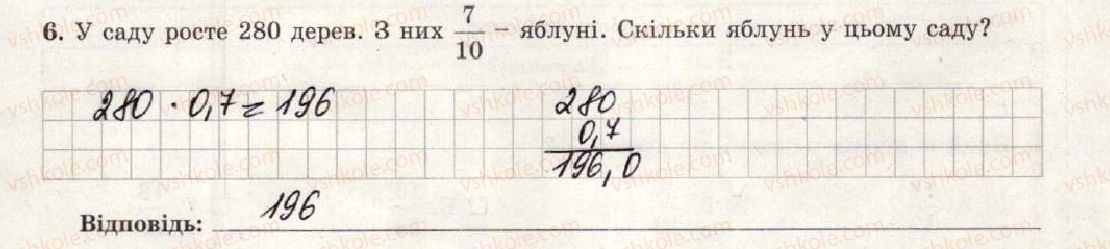 6. У саду росте 280 дерев. З них 7/10 – яблуні. Скільки яблунь у цьому саду?
280 · 0,7 = 196
280
0,7
196,0
Відповідь: 196